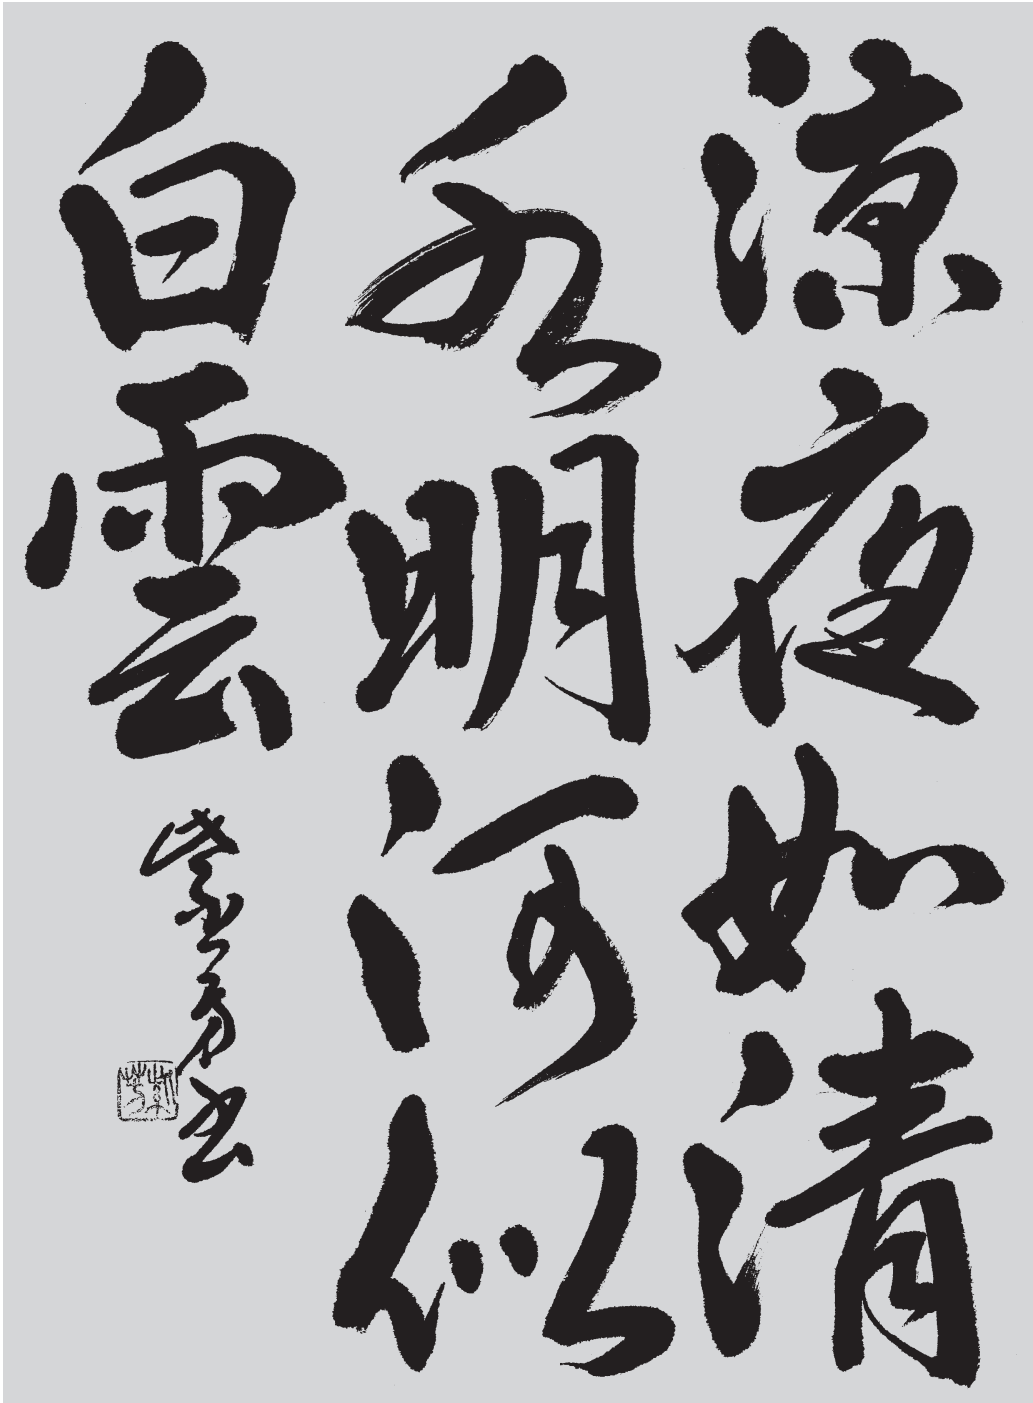 涼夜如清
水明河似
白雲
紫芳書